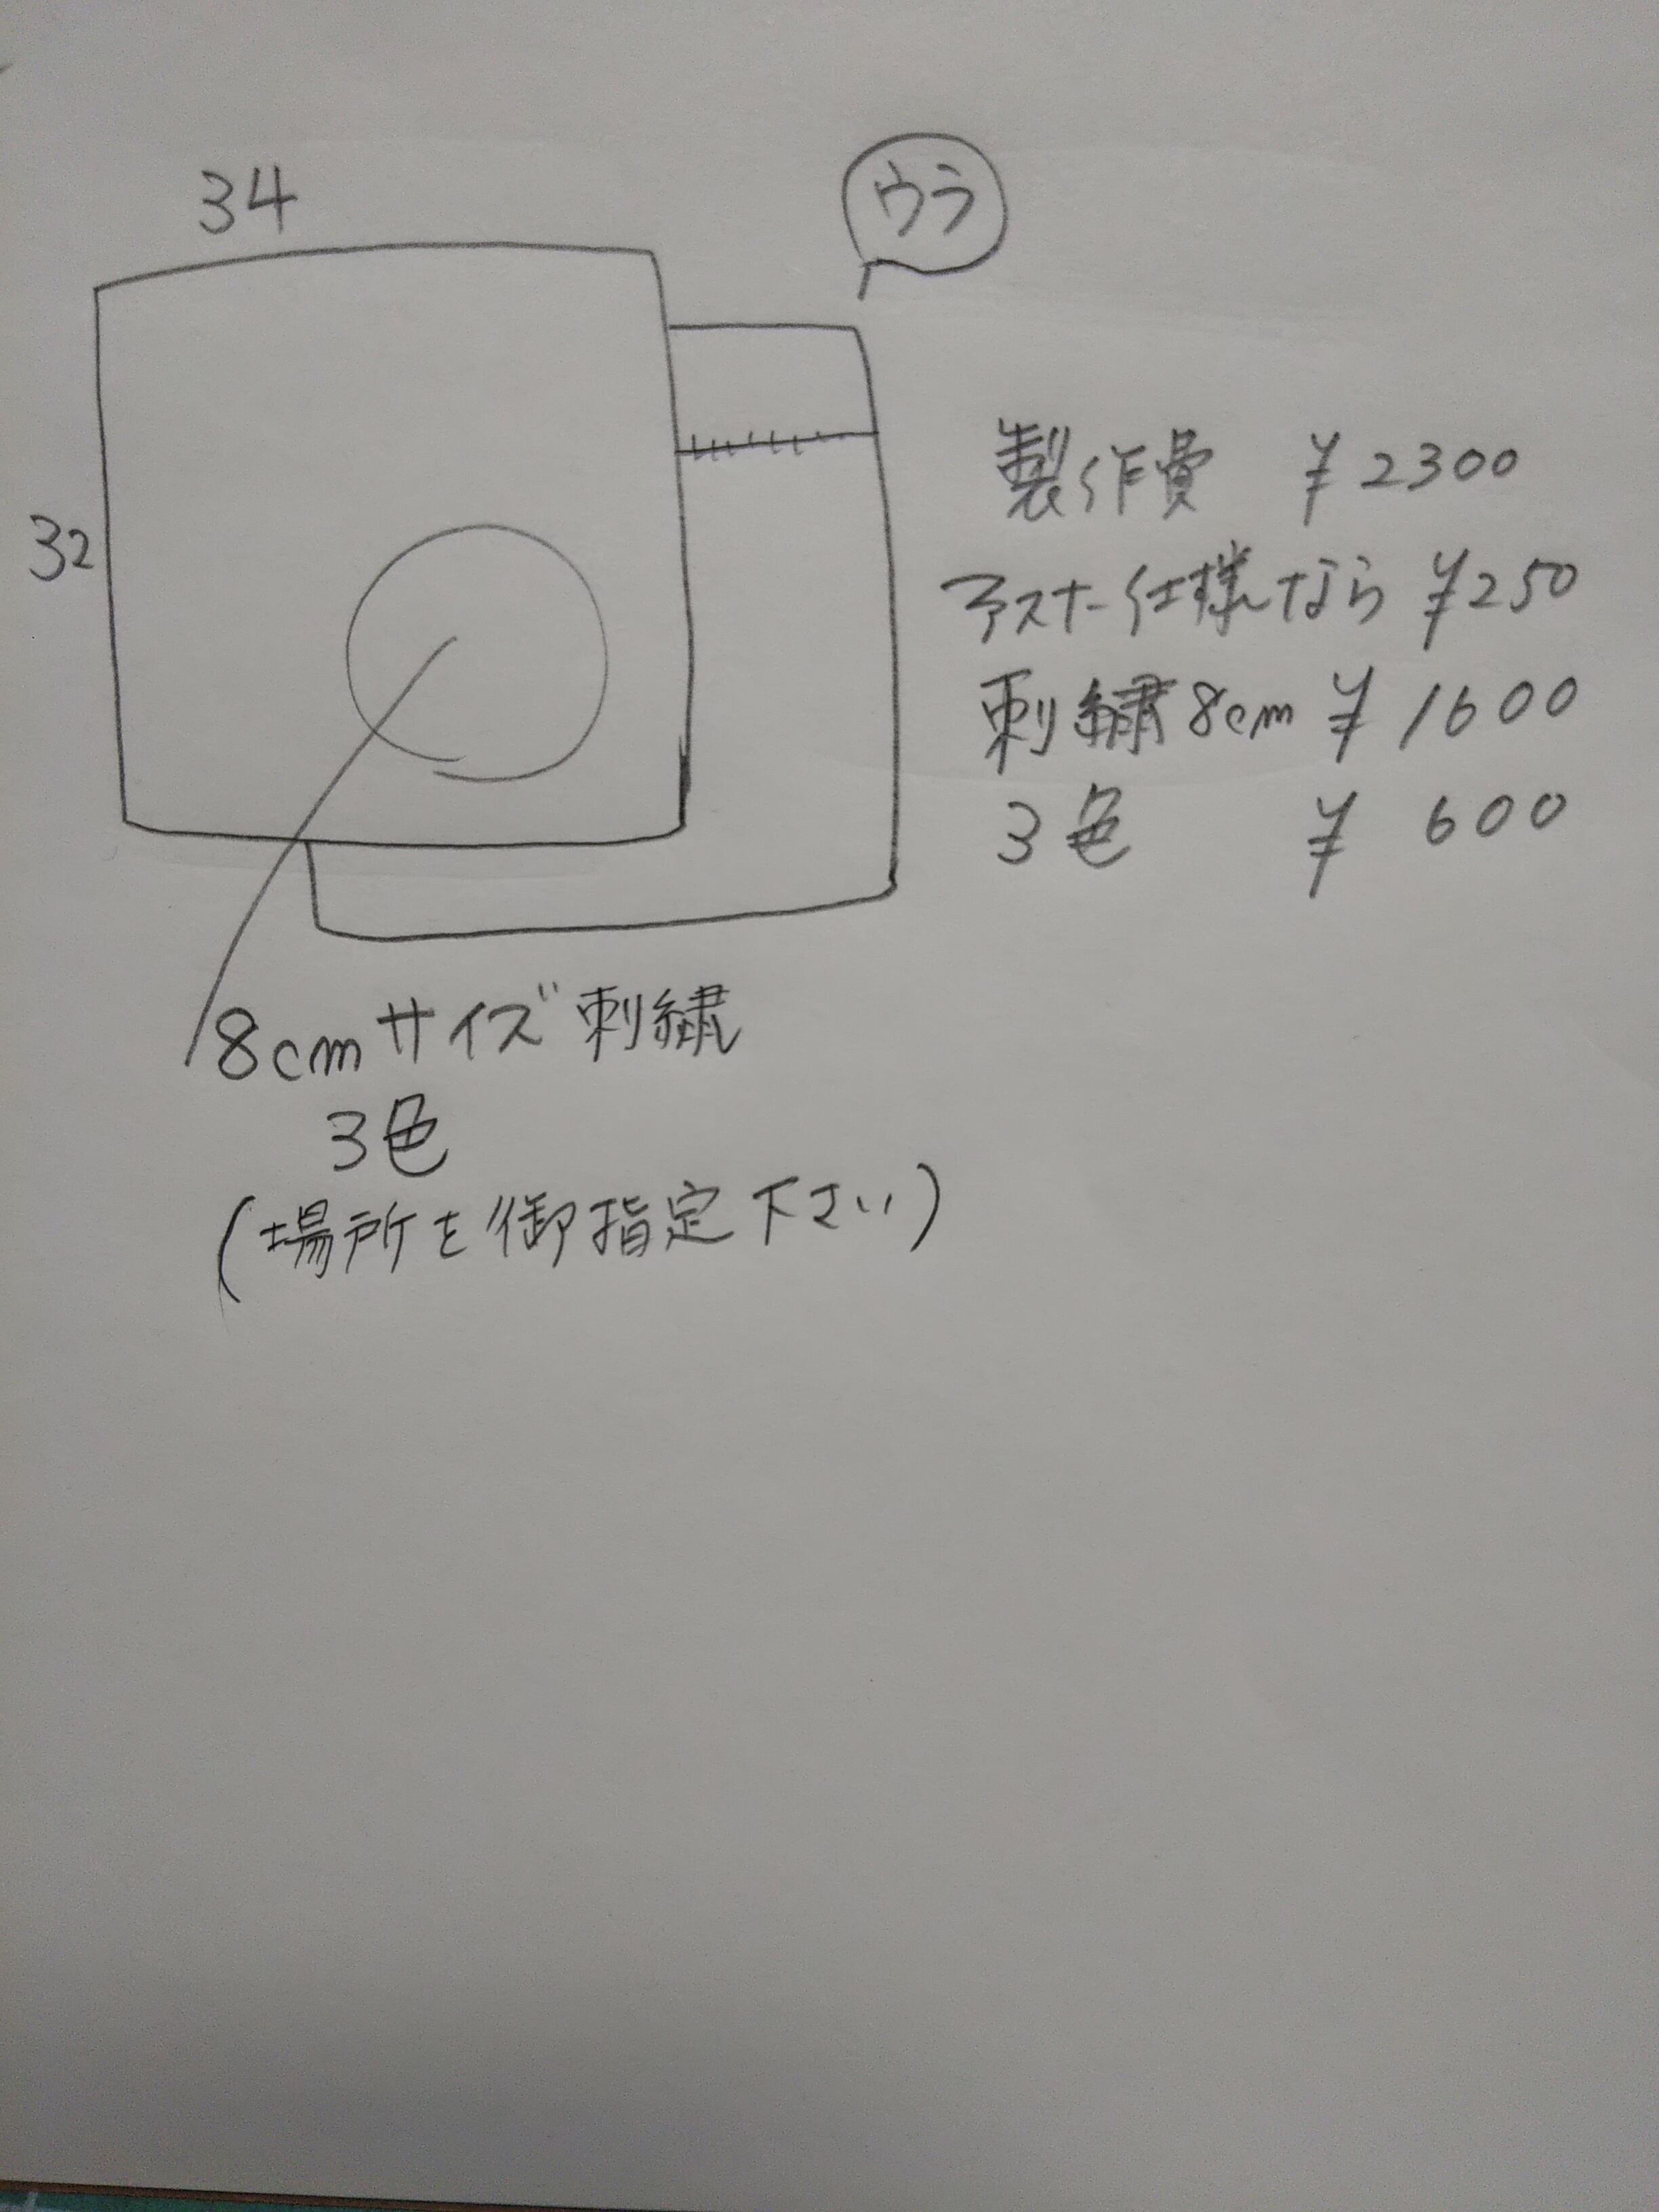 34
ウラ
32
製作費 ¥2300
ファスナー仕様なら ¥250
刺繍8cm ¥1600
3色 ¥600
8cmサイズ刺繍
3色
(場所を御指定下さい)